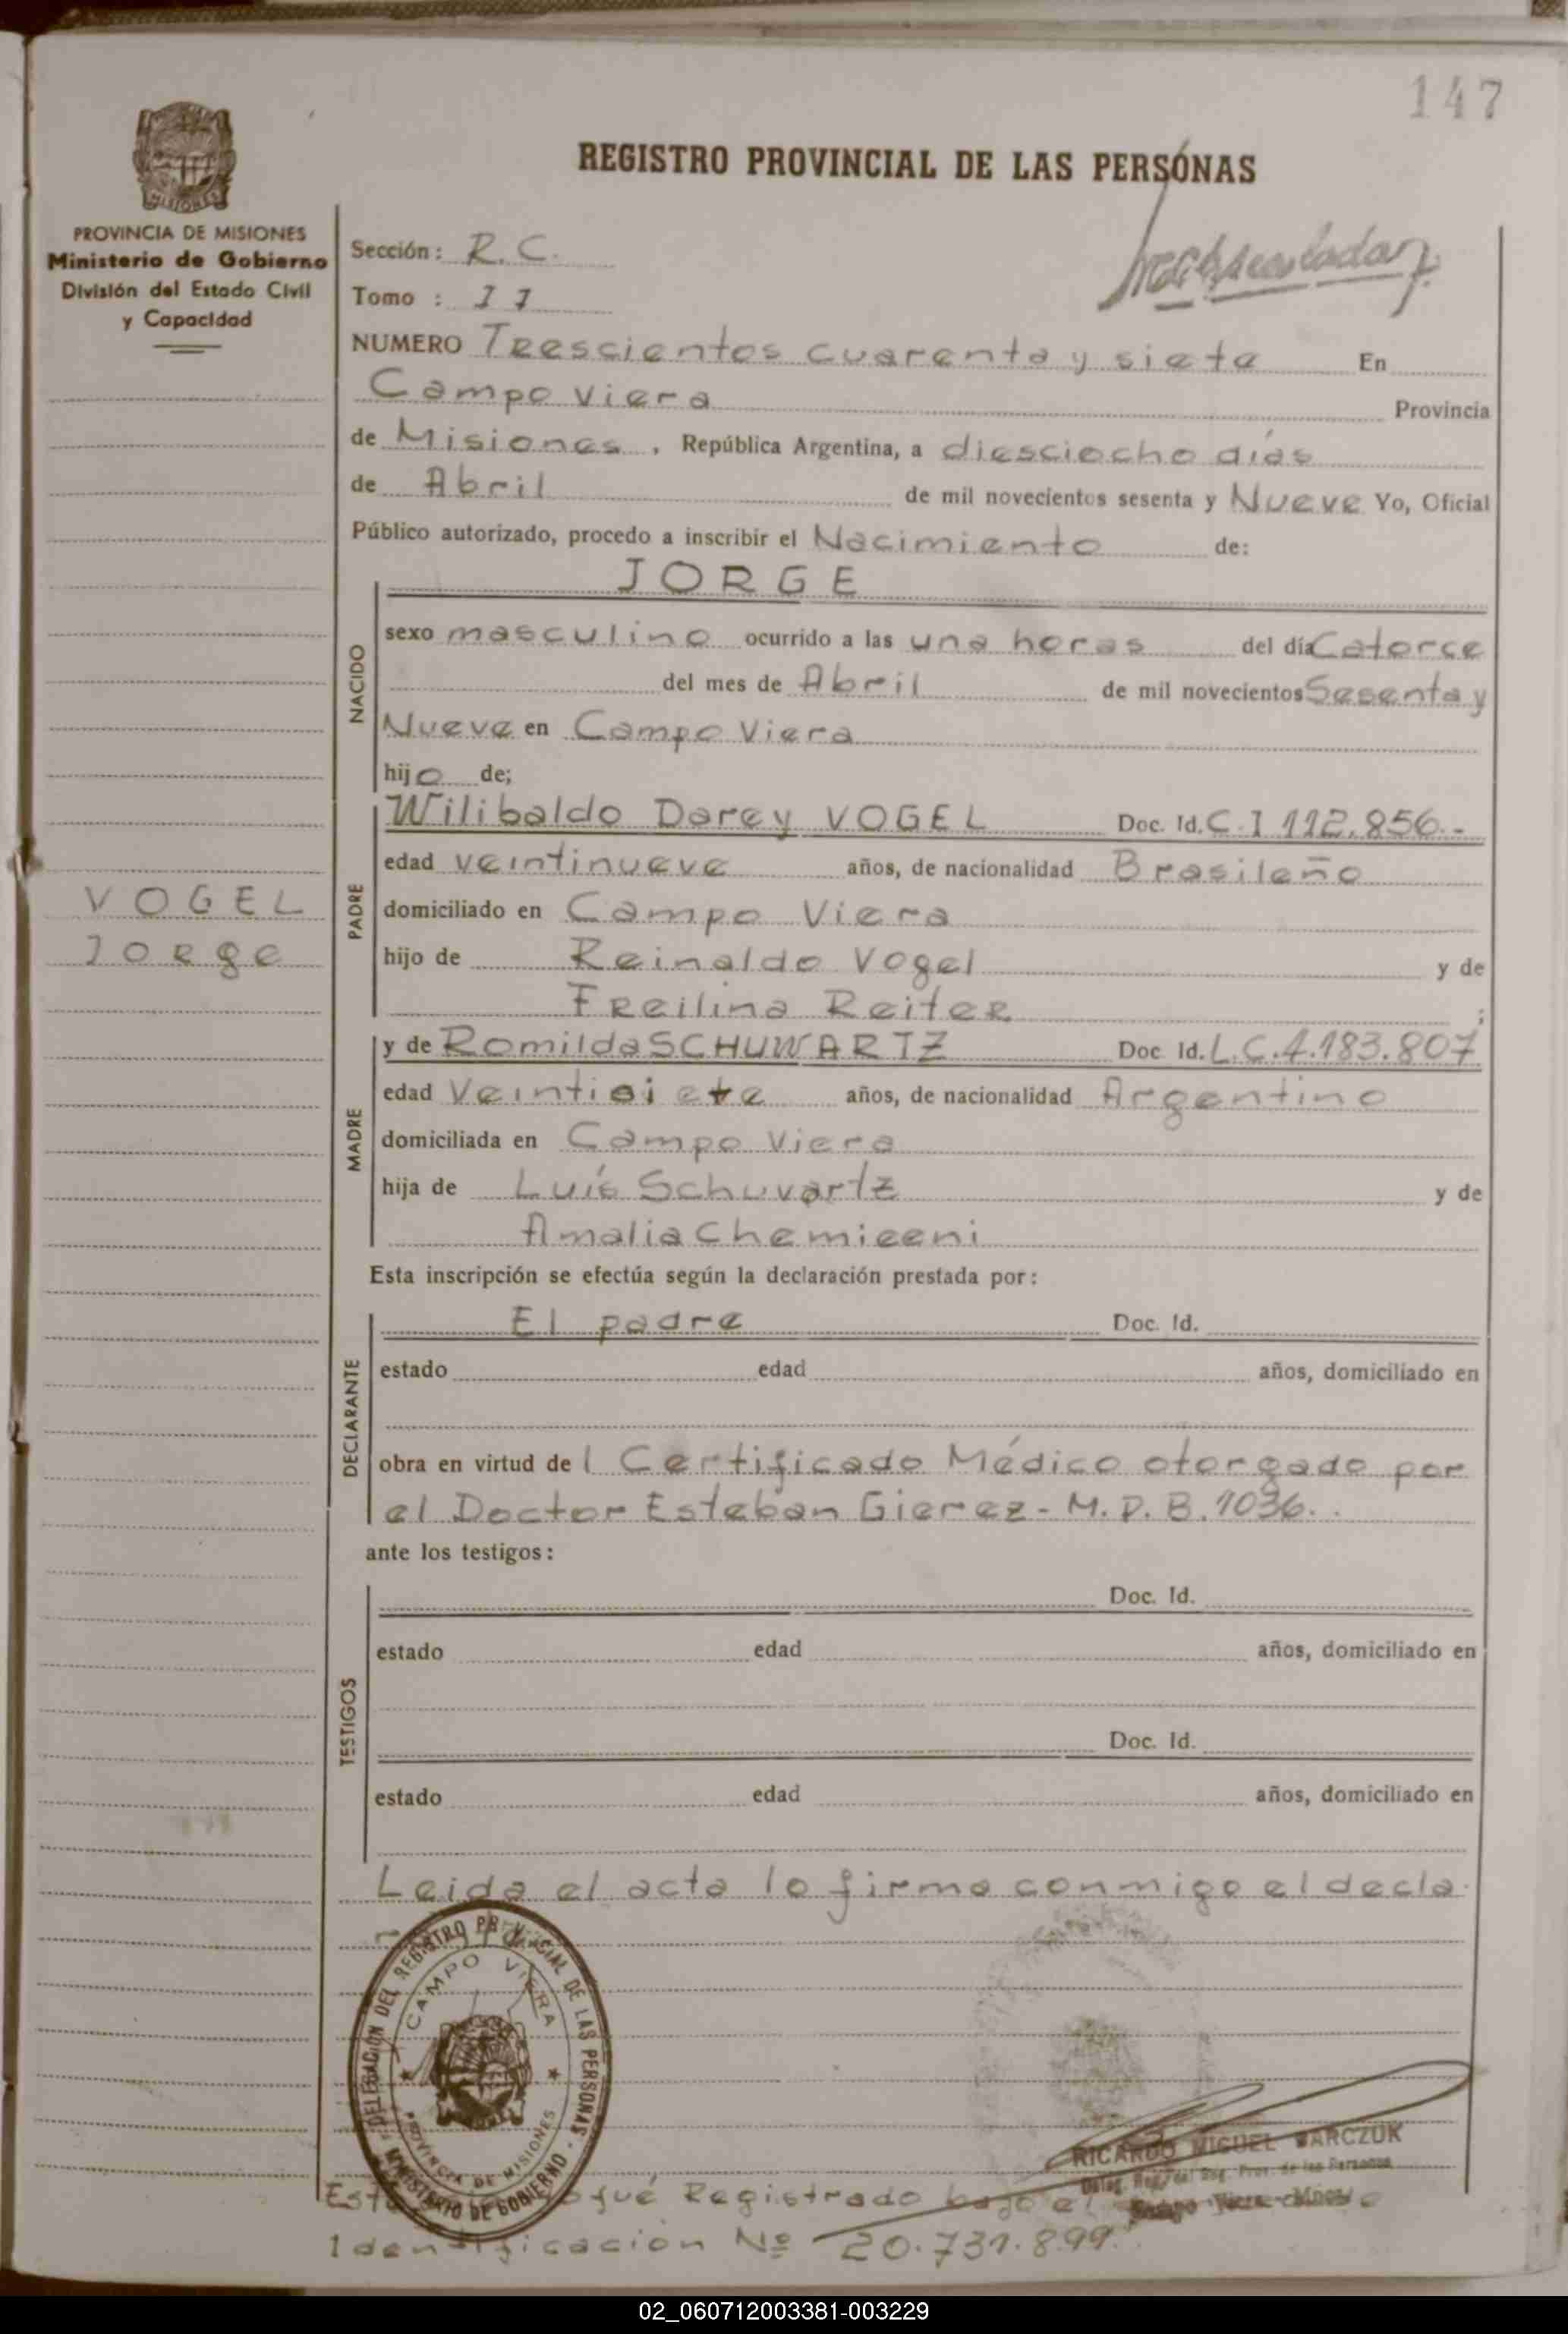 147
REGISTRO PROVINCIAL DE LAS PERSONAS
PROVINCIA DE MISIONES
Ministerio de Gobierno
División del Estado Civil
y Capacidad
Sección: R.C.
Tomo : II
NUMERO Trescientos cuarenta y siete En
Campo Viera Provincia
de Misiones, República Argentina, a diesciocho días
de Abril de mil novecientos sesenta y Nueve Yo, Oficial
Público autorizado, procedo a inscribir el Nacimiento de:
NACIDO
JORGE
sexo masculino ocurrido a las una horas del día Catorce
del mes de Abril de mil novecientos Sesenta y
Nueve en Campo Viera
hijo de;
PADRE
Wilibaldo Darcy VOGEL Doc. Id. C.I 112.856.-
edad veintinueve años, de nacionalidad Brasileño
VOGEL
Jorge
domiciliado en Campo Viera
hijo de Reinaldo Vogel y de
Freilina Reiter ;
MADRE
y de Romilda SCHUWARTZ Doc. Id. L.C.4.183.807
edad Veintisiete años, de nacionalidad Argentino
domiciliada en Campo Viera
hija de Luís Schuvartz y de
Amalia Chemiceni
Esta inscripción se efectúa según la declaración prestada por:
DECLARANTE
El padre Doc. Id.
estado edad años, domiciliado en
obra en virtud del Certificado Médico otorgado por
el Doctor Esteban Gierez - M.P.B. 1036..
ante los testigos:
TESTIGOS
Doc. Id.
estado edad años, domiciliado en
Doc. Id.
estado edad años, domiciliado en
Leida el acta lo firma conmigo el decla
DELEGACION DEL REGISTRO PROVINCIAL DE LAS PERSONAS - MINISTERIO DE GOBIERNO
CAMPO VIERA
PROVINCIA DE MISIONES
RICARDO MIGUEL BARCZUK
Prov. de las Personas
fué Registrado bajo el
Identificación Nº 20.731.899.
02_060712003381-003229